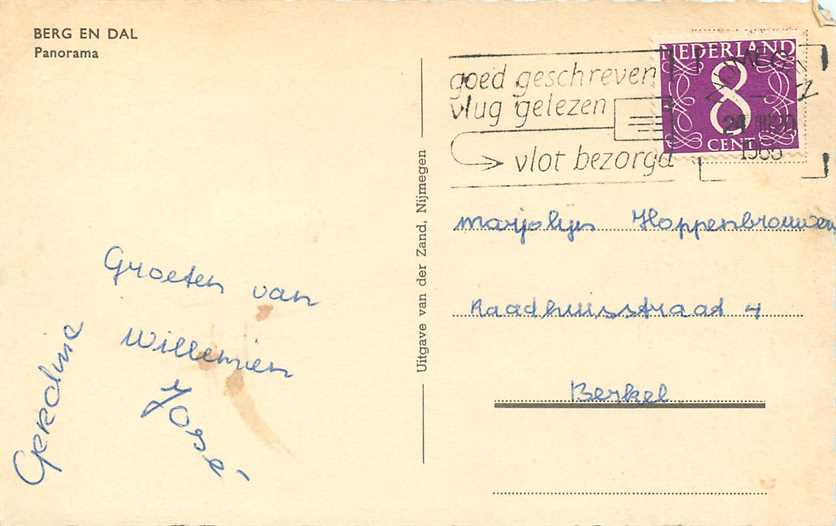 BERG EN DAL
Panorama
goed geschreven
vlug gelezen
vlot bezorgd
NEDERLAND
8
CENT
Uitgave van der Zand, Nijmegen
Groeten van
Willemien
José
Gerdine
Marjolijn Hoppenbrouwers
Raadhuisstraat 4
Berkel.